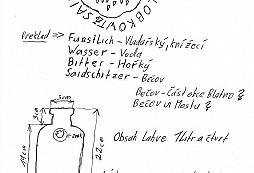 LOBKOWITZ SAI
Preklad => Fürstlich - Vladařský, knížecí
Wasser - Voda
Bitter - Hořký
Saidschitzer - Bečov
Bečov - Část obce Blatno ?
Bečov u Mostu ?
5cm
3cm
19cm
22cm
Obsah Lahve 1 litr a čtvrt